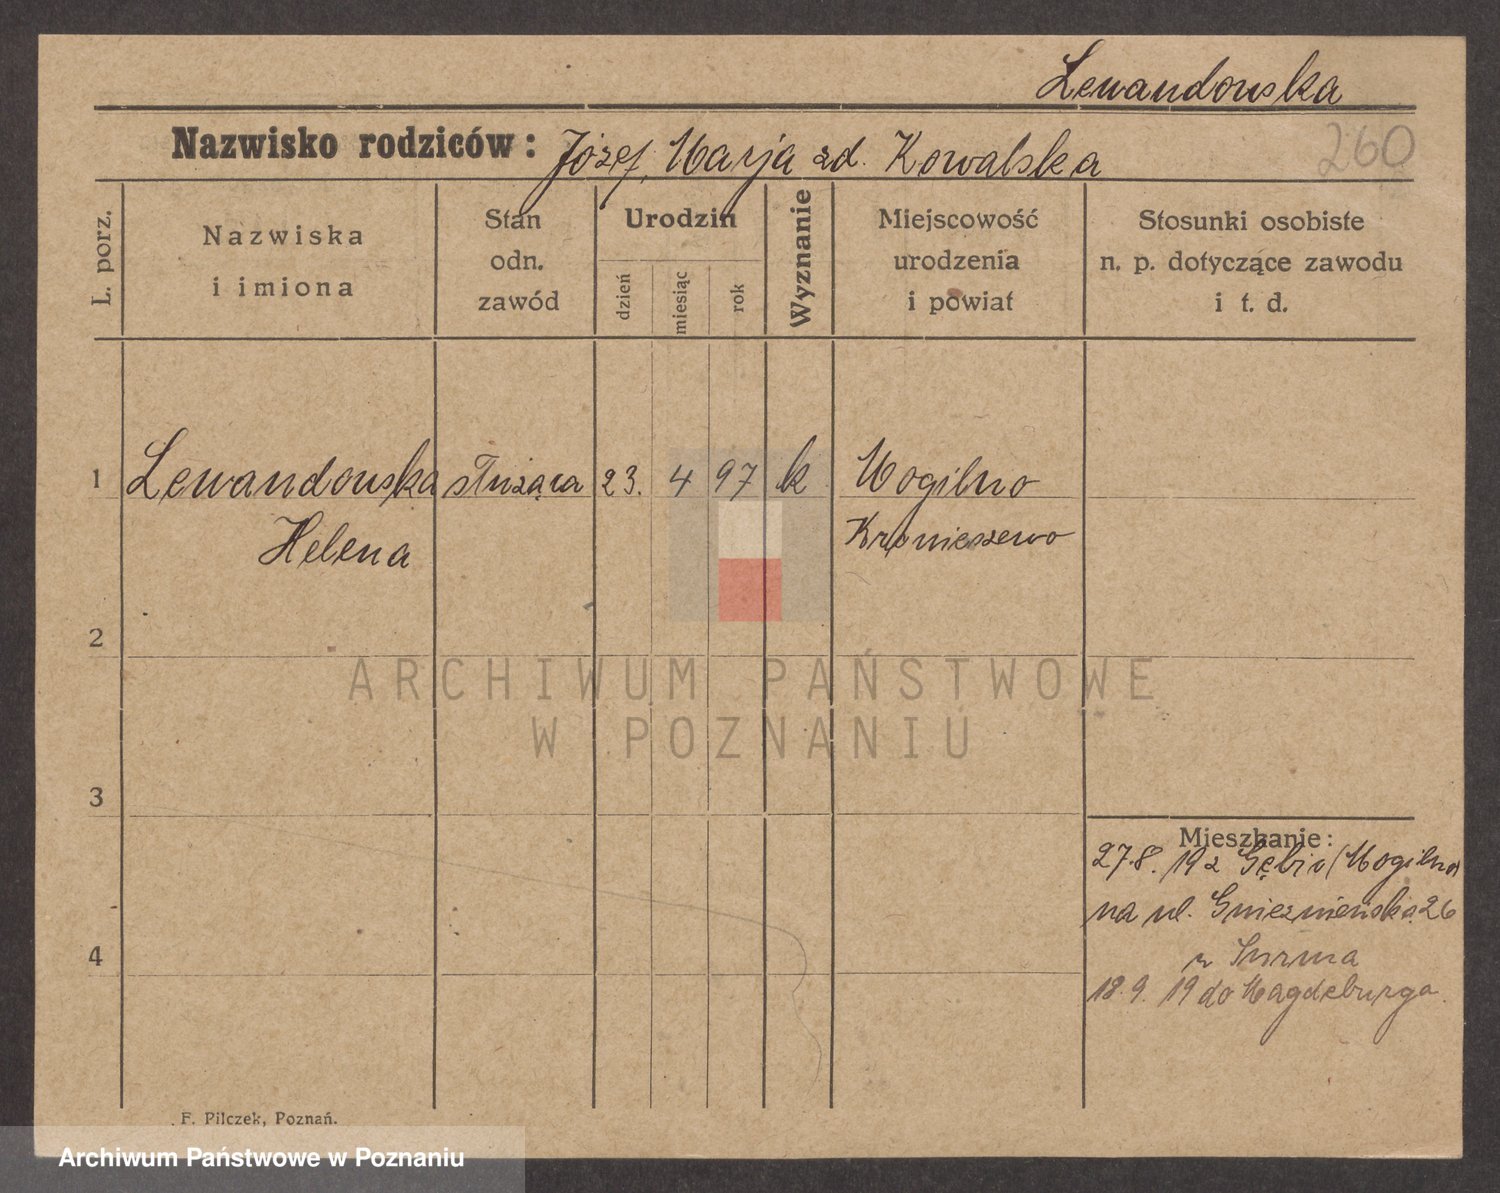 Lewandowska
Nazwisko rodziców: Józef, Marja zd. Kowalska
260
L. porz.
Nazwiska
i imiona
Stan
odn.
zawód
Urodzin
dzień
miesiąc
rok
Wyznanie
Miejscowość
urodzenia
i powiat
Stosunki osobiste
n. p. dotyczące zawodu
i t. d.
1 Lewandowska służąca 23. 4 97 k Mogilno
Helena
2
ARCHIWUM PAŃSTWOWE
W POZNANIU
3
Mieszkanie:
27.8. 19 z Gębic (Mogilno)
na ul. Gnieznieńską 26
4
18.9. 19 do Magdeburga.
F. Pilczek, Poznań.
Archiwum Państwowe w Poznaniu